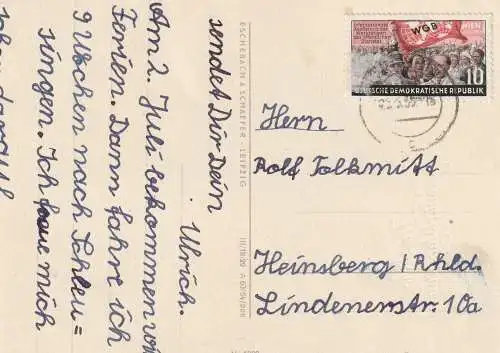 sendet Dir Dein
Ulrich.
Am 2. Juli bekommen wir
Ferien. Dann fahre ich
9 Wochen nach Schleu=
singen. Ich freue mich
schon darauf
ESCHEBACH & SCHAEFER · LEIPZIG
III/18/29 A 63/54/DDR
WGB
WIEN
10
DEUTSCHE DEMOKRATISCHE REPUBLIK
Herrn
Rolf Folkmitt
Heinsberg / Rhld.
Lindenerstr. 10a